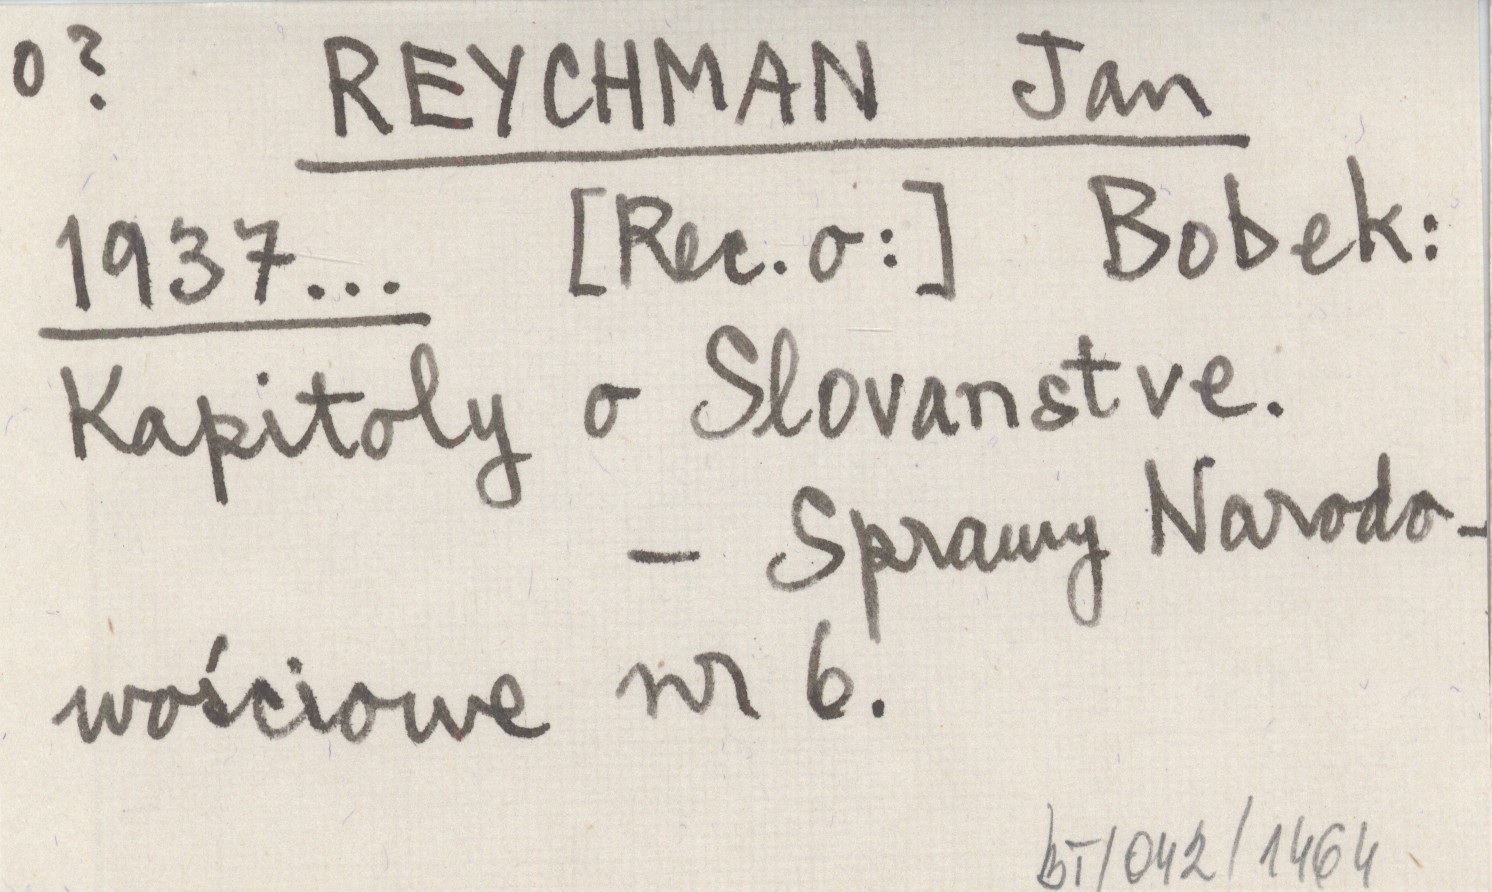 o? REYCHMAN Jan
1937... [Rec. o:] Bobek:
Kapitoly o Slovanstve.
– Sprawy Narodo-
wościowe nr 6.
BT/042/1464